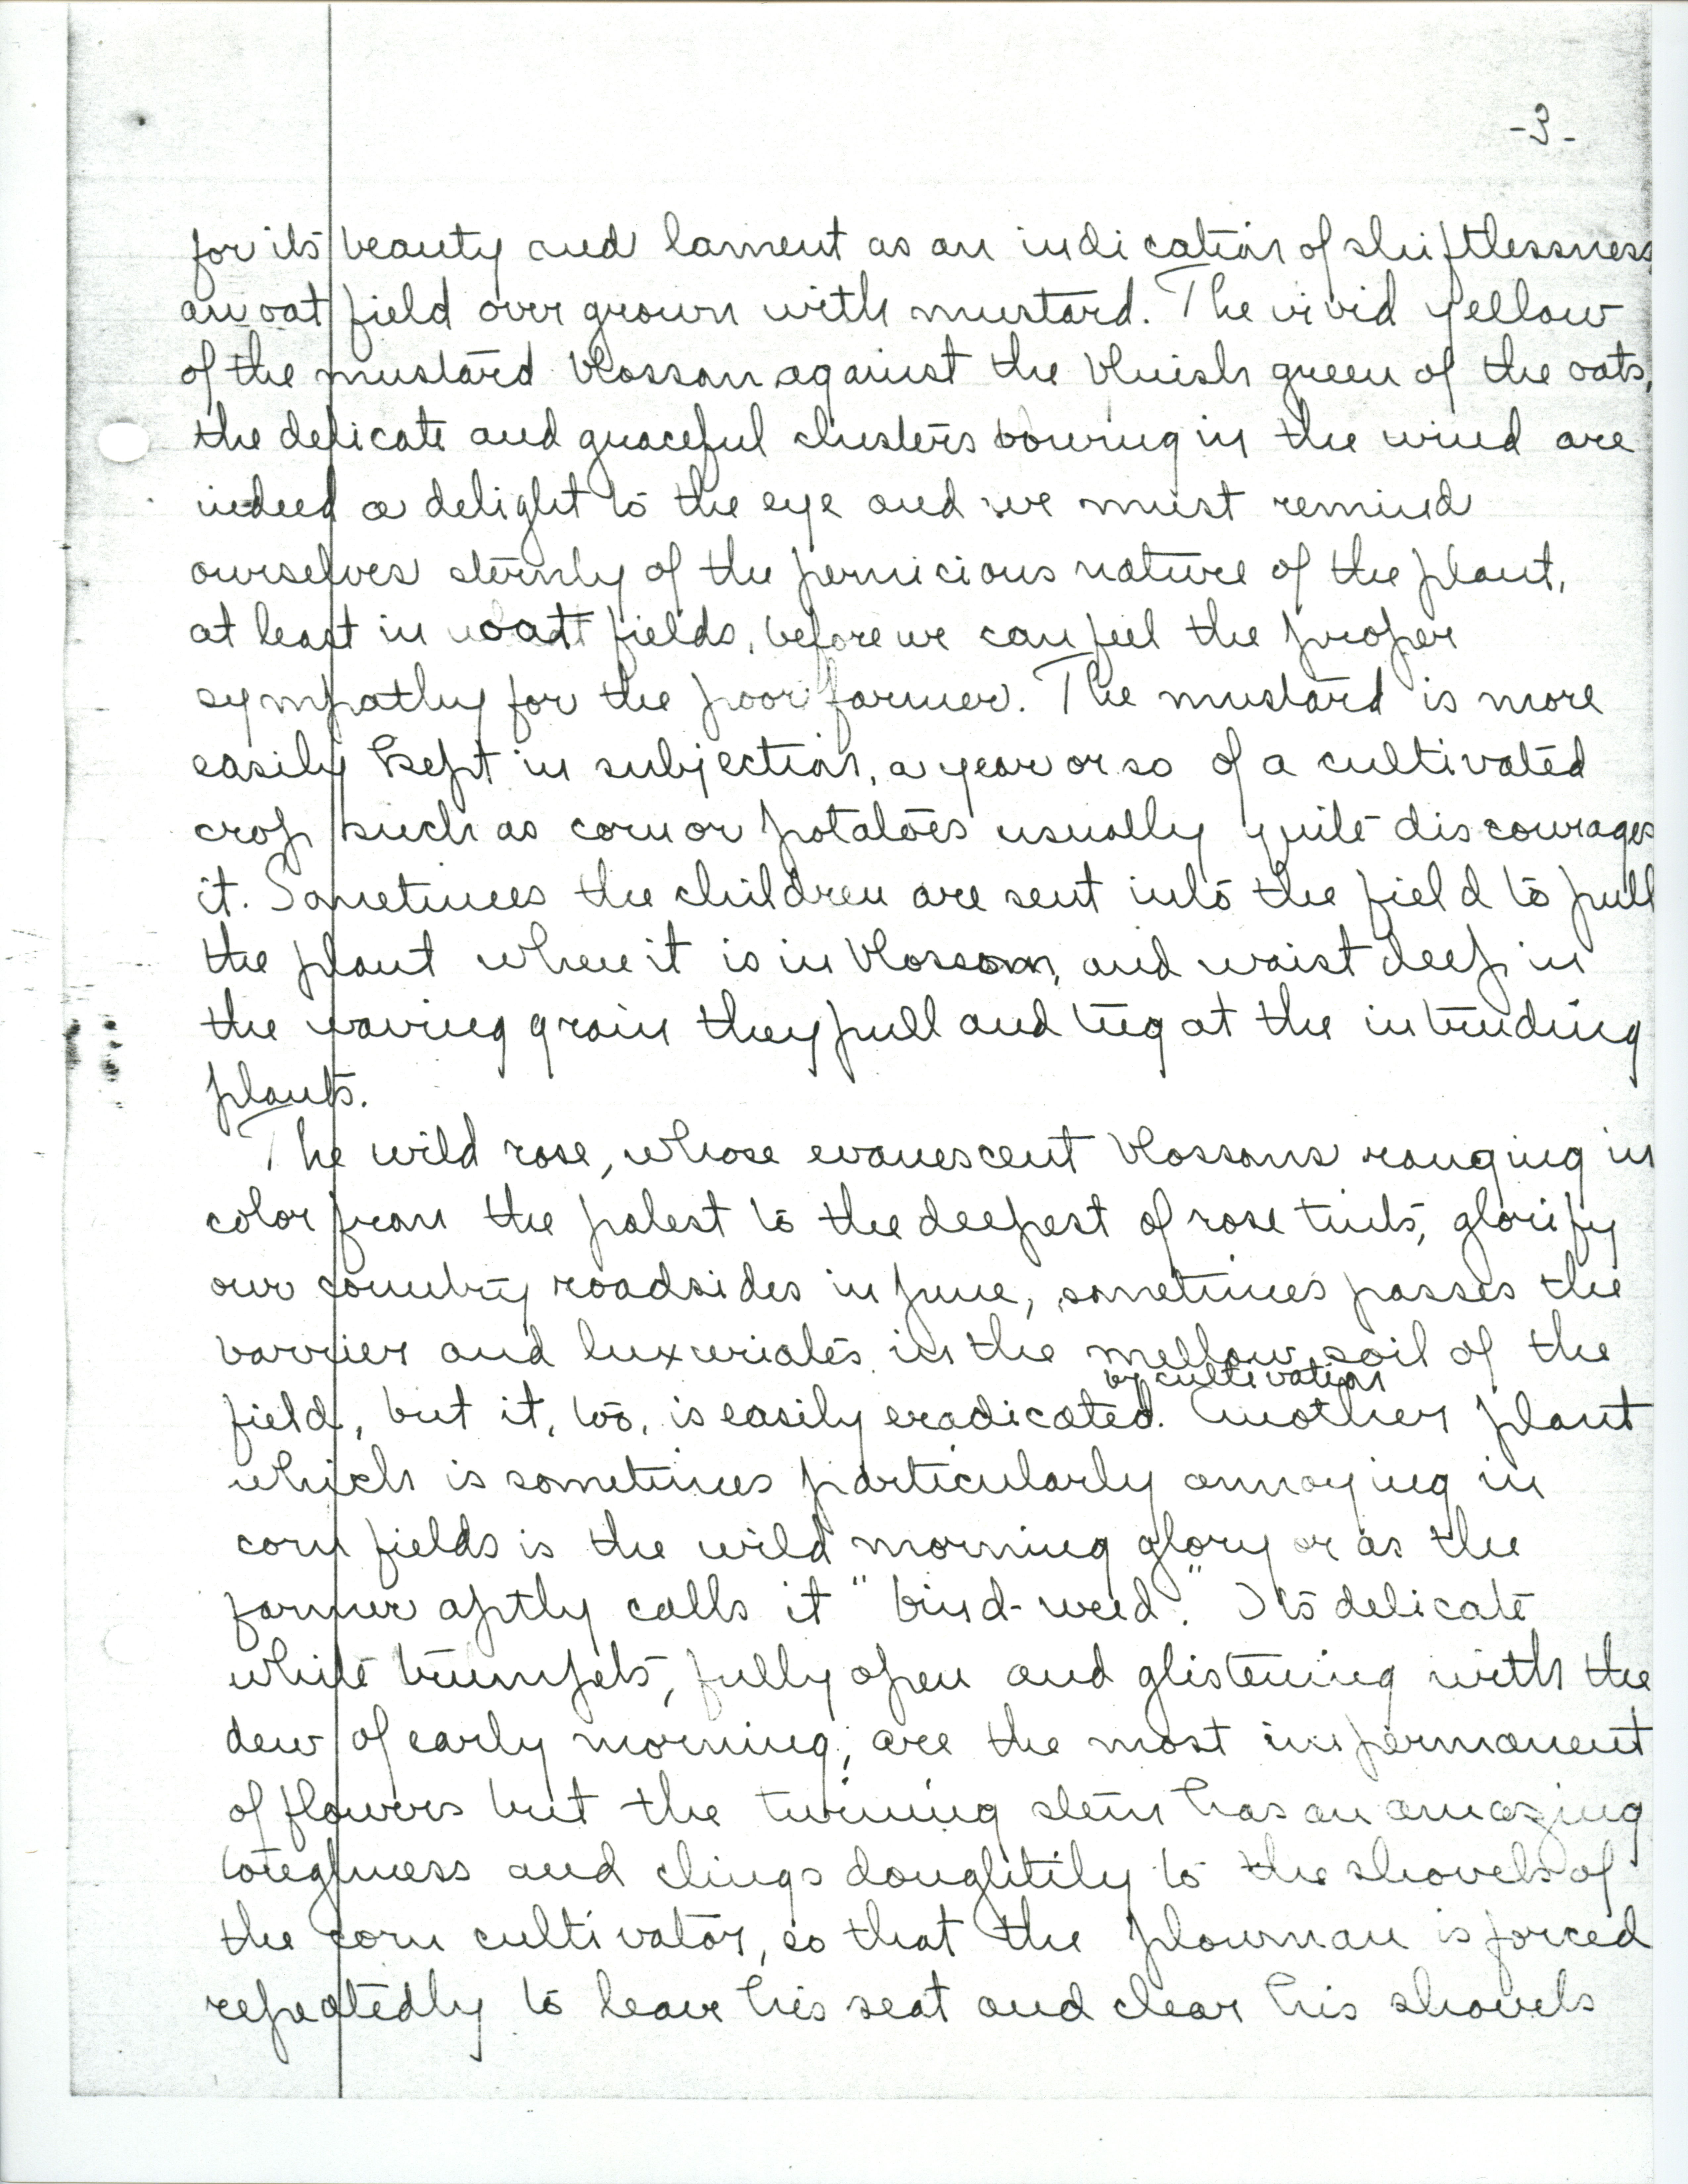 -3-
for its beauty and lament as an indication of shiftlessness
an oat field over grown with mustard. The vivid yellow
of the mustard blossom against the bluish green of the oats,
the delicate and graceful clusters bowing in the wind are
indeed a delight to the eye and we must remind
ourselves sternly of the pernicious nature of the plant,
at least in oat fields, before we can feel the proper
sympathy for the poor farmer. The mustard is more
easily kept in subjection, a year or so of a cultivated
crop such as corn or potatoes usually quite discourages
it. Sometimes the children are sent into the field to pull
the plant when it is in blossom, and waist deep in
the waving grain they pull and tug at the intruding
plants.
The wild rose, whose evanescent blossoms ranging in
color from the palest to the deepest of rose tints, glorify
our country roadsides in June, sometimes passes the
barrier and luxuriates in the mellow soil of the
by cultivation
field, but it, too, is easily eradicated. Another plant
which is sometimes particularly annoying in
corn fields is the wild morning glory or as the
farmer aptly calls it "bind-weed." Its delicate
white trumpets, fully open and glistening with the
dew of early morning, are the most impermanent
of flowers but the twining stem has an amazing
toughness and clings doughtily to the shovels of
the corn cultivator, so that the plowman is forced
repeatedly to leave his seat and clear his shovels